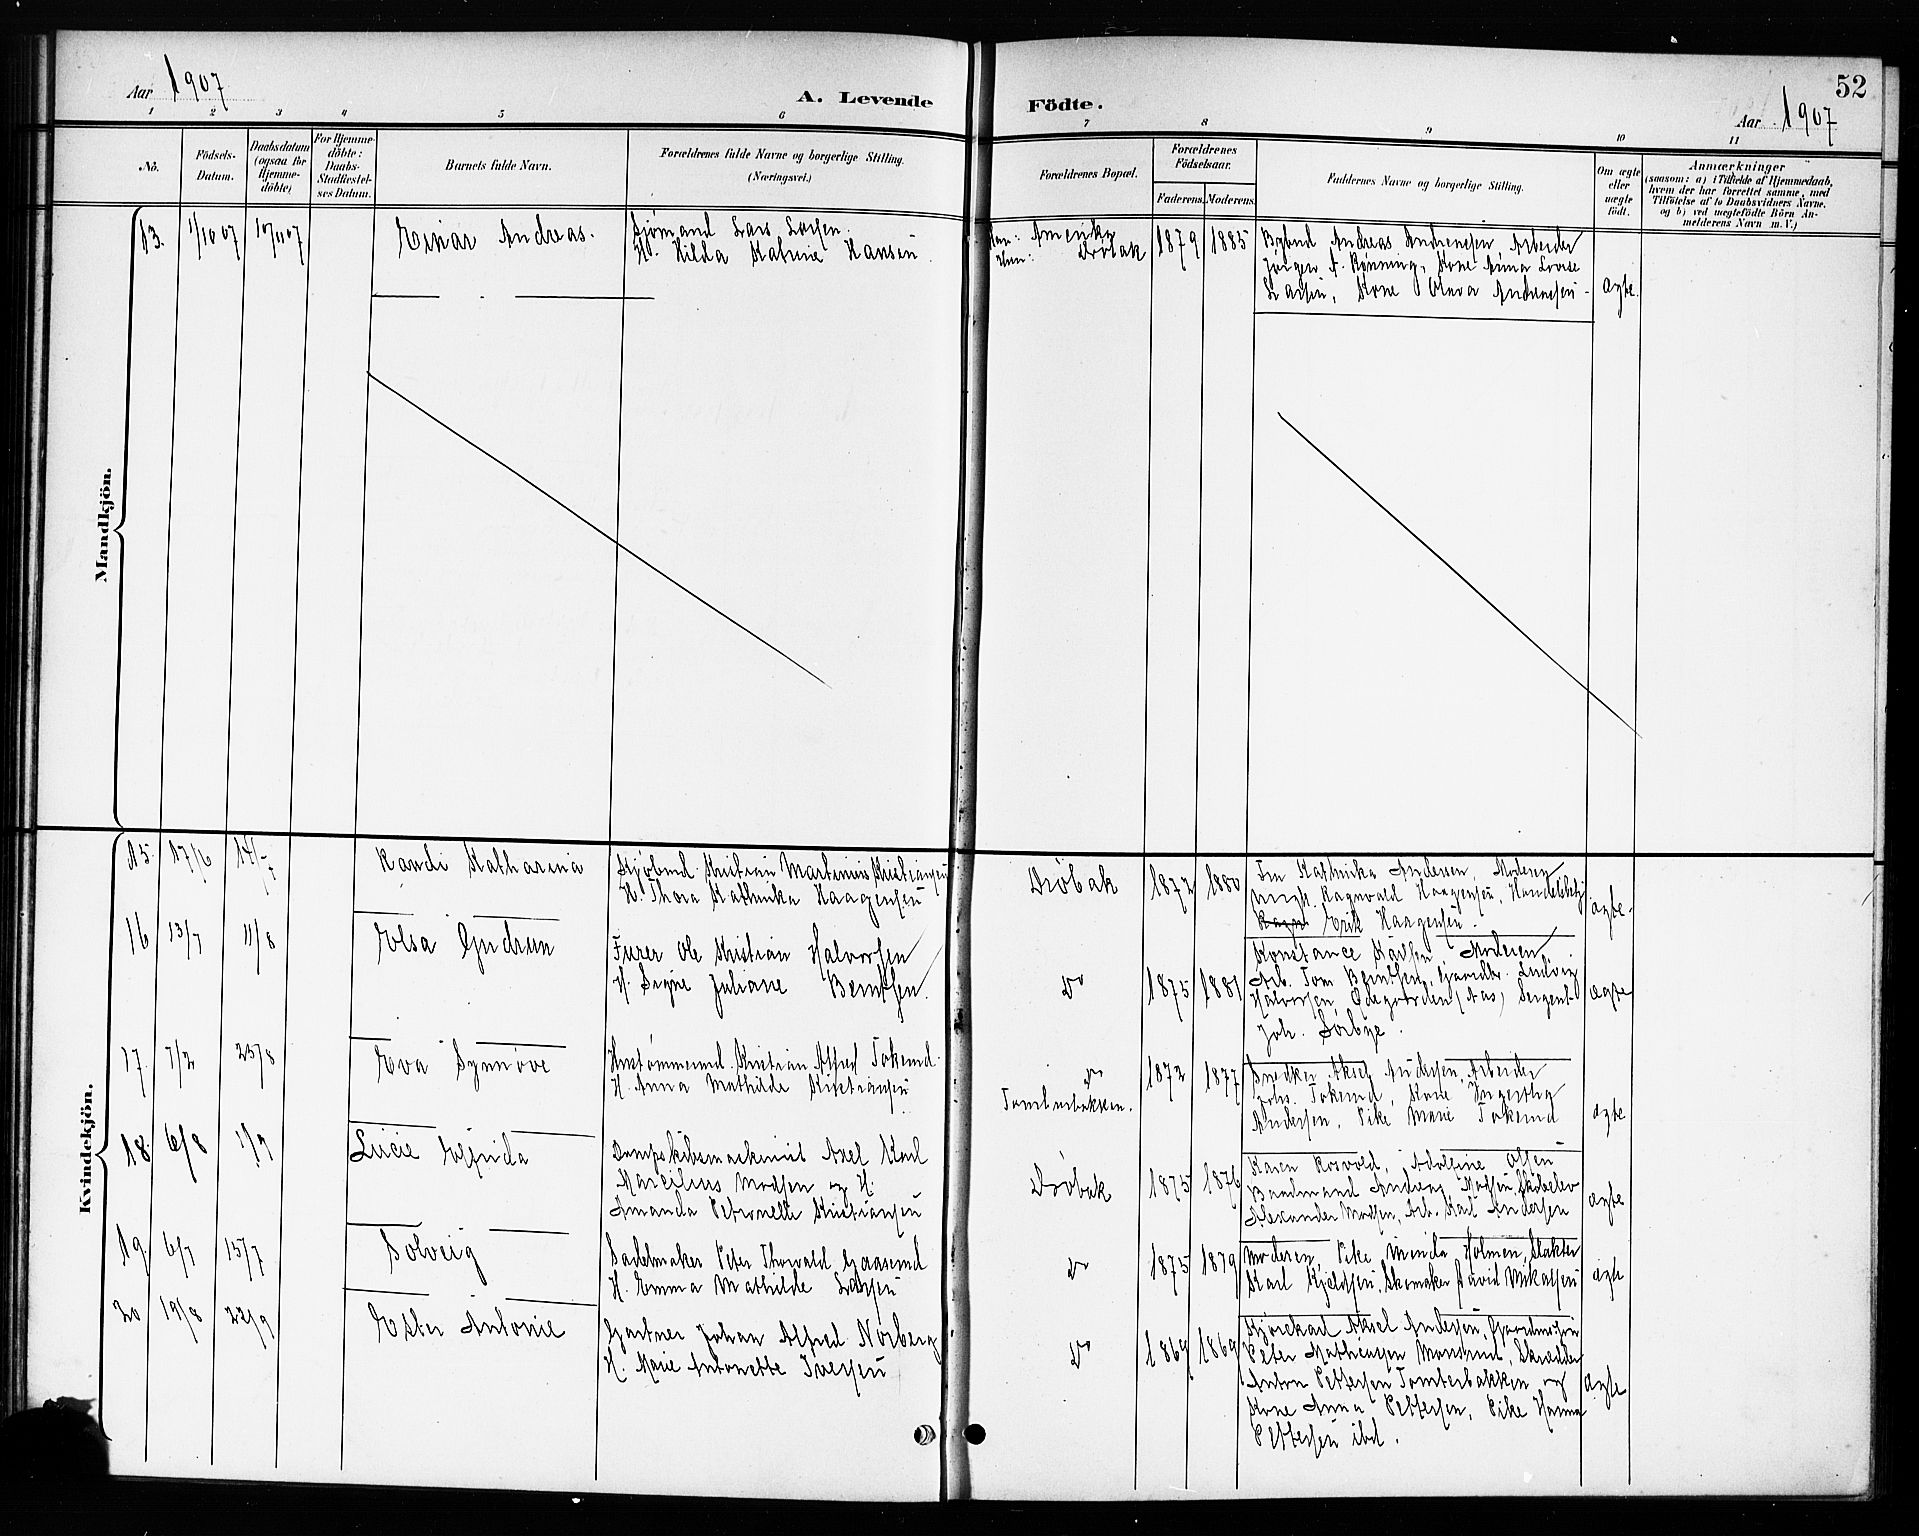 52
Aar 1907
A. Levende Födte.
Aar 1907
1 2 3 4 5 6 7 8 9 10 11
No.
Födsels-Datum.
Daabsdatum (ogsaa for Hjemme-döbte)
For Hjemme-döbte: Daabs-Stadfæstel-ses Datum.
Barnets fulde Navn.
Forældrenes fulde Navne og borgerlige Stilling.
(Næringsvei.)
Forældrenes Bopæl.
Forældrenes Födselsaar.
Faderens. Moderens.
Faddernes Navne og borgerlige Stilling.
Om ægte eller uægte födt.
Anmærkninger
(saasom: a) i Tilfælde af Hjemmedaab,
hvem der har forrettet samme, med
Tilföielse af to Daabsvidners Navne.
og b) ved uægtefödte Börn An-
melderens Navn m. V.)
Mandkjön.
13. 1/10 07 10/11 07
Einar Andreas.
Sjömand Lars Larsen
H. Hilda Katrine Hansen.
Han: Amerika
Hun: Dröbak
1879 1885
Bybud Andreas Andreassen, Arbeider
Jörgen F. Rönning, Kone Anna Lovise
Larsen, Kone Olava Andreassen
ægte.
Kvindekjön.
15. 17/6 14/7
Randi Katharina
Kjöbmd. Kristian Martinius Kristiansen
H. Thora Kathinka Haagensen
Dröbak
1872 1880
Fru Kathinka Andersen, Moderen
Ragnvald Haagensen, Handelsbetj.
Erik Haagensen.
ægte.
16 13/7 11/8
Elsa Gudrun
Furer Ole Kristian Halvorsen
H. Signe Juliane Berntsen.
Do
1875 1881
Konstance Karlsen, Moderen,
Arb. Tom Berntsen, Gaardbr. Ludvig
Halvorsen, Ödegaarden (Aas) Sergent
Joh. Sörbye.
ægte
17. 7/2 25/8
Eva Synnöve
Hustömmermd. Kristian Alfred Tokerud
H. Anna Mathilde Kristiansen
Do
Tomterbakken.
1872 1877
Snedker Aksel Andersen, Arbeider
Johs. Tokerud, Kone Ingeborg
Andersen, Pike Marie Tokerud
ægte
18. 6/8 1/9
Lucie Elfrida
Dampskibsmaskinist Axel Karl
Marcilius Madsen og H.
Amanda Petronelle Kristiansen
Dröbak
1875 1876
Karen Rosvold, Adolfine Olsen
Baadmand Andreas Madsen,
Alexander Madsen, Arb. Karl Andersen
ægte
19. 6/7 15/7
Solveig
Sadelmaker Peter Thorvald Gaaserud
H. Emma Mathilde Larsen
Do
1875 1879
Moderen, Pike Minda Holmen, Slakter
Karl Kjeldsen, Skomaker David Mikalsen
ægte
20 19/8 22/9
Ester Antonie
Gartner Johan Alfred Norberg
H. Marie Antonette Iversen
Do
1869 1869
Kjörekarl Aksel Andersen,
Peter Mathiassen Monsrud, Skrædder
Anton Pettersen Tomterbakken og
Kone Anna Pettersen, Pike Hanna
Pettersen ibd.
ægte